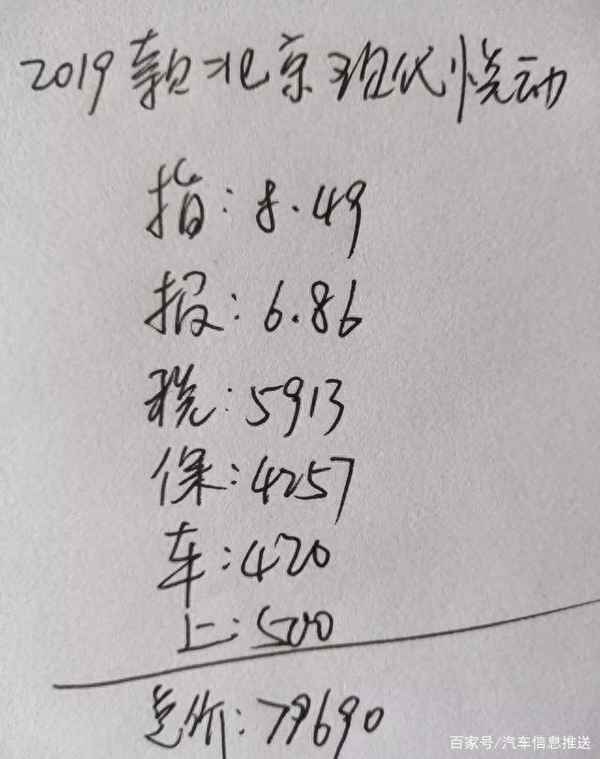 2019款北京现代悦动
指:8.49
报:6.86
税:5913
保:4257
车:420
上:500
总价:79690
百家号/汽车信息推送